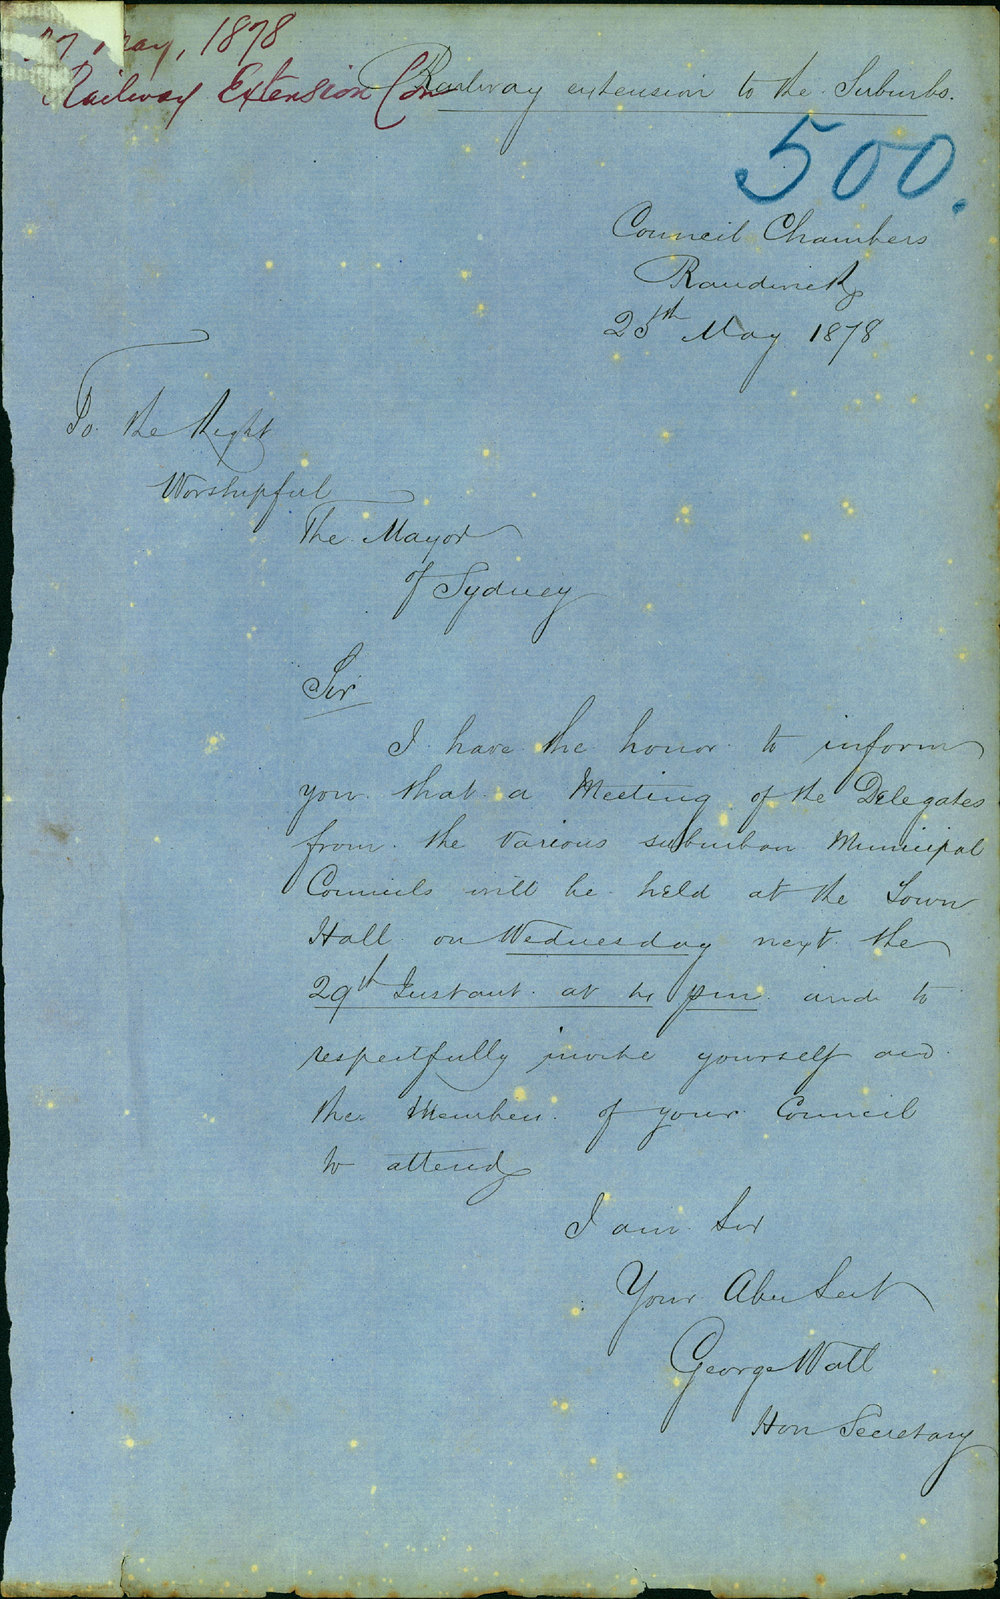 27 May, 1878
Railway Extension Com
Railway extension to the Suburbs.
500.
Council Chambers
Randwick
25th May 1878
To the Right
Worshipful
The Mayor
of Sydney
Sir
I have the honor to inform
you that a Meeting of the Delegates
from the various suburban Municipal
Councils will be held at the Town
Hall on Wednesday next the
29th Instant at 4 pm and to
respectfully invite yourself and
the Members of your Council
to attend
I am Sir
Your Obn Sert
George Wall
Hon Secretary